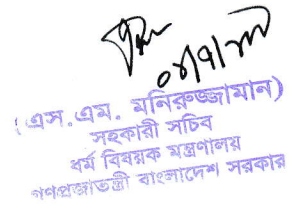 (এস.এম. মনিরুজ্জামান)
সহকারী সচিব
ধর্ম বিষয়ক মন্ত্রণালয়
গণপ্রজাতন্ত্রী বাংলাদেশ সরকার